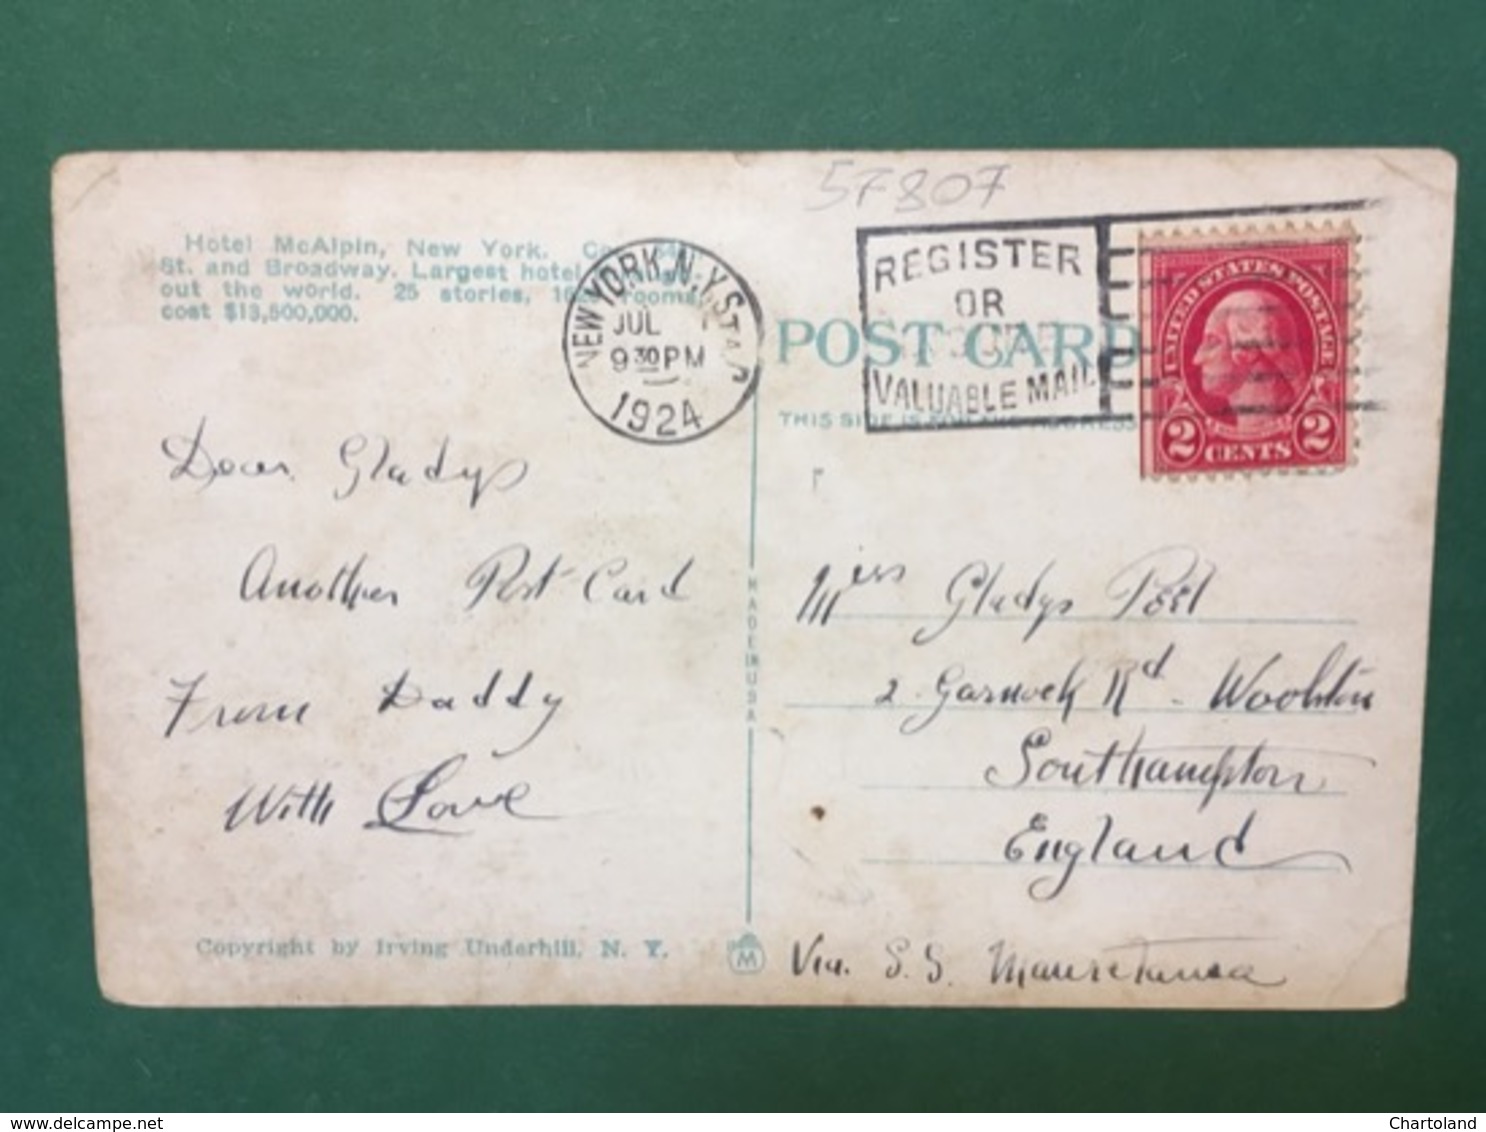 57807
Hotel McAlpin, New York.
St. and Broadway. Largest hotel
out the world. 25 stories, rooms,
cost $13,500,000.
NEW YORK, N.Y. STA
JUL
9 30 PM
1924
REGISTER
OR
VALUABLE MAIL
UNITED STATES POSTAGE
2 CENTS 2
POST CARD
THIS SIDE IS FOR THE ADDRESS
Dear Gladys
Another Post Card
From Daddy
With Love
MADE IN USA
Miss Gladys
2. Rd - Woolston
Southampton
England
Via. S.S. Mauretania
Copyright by Irving Underhill, N. Y.
M
www.delcampe.net
Chartoland